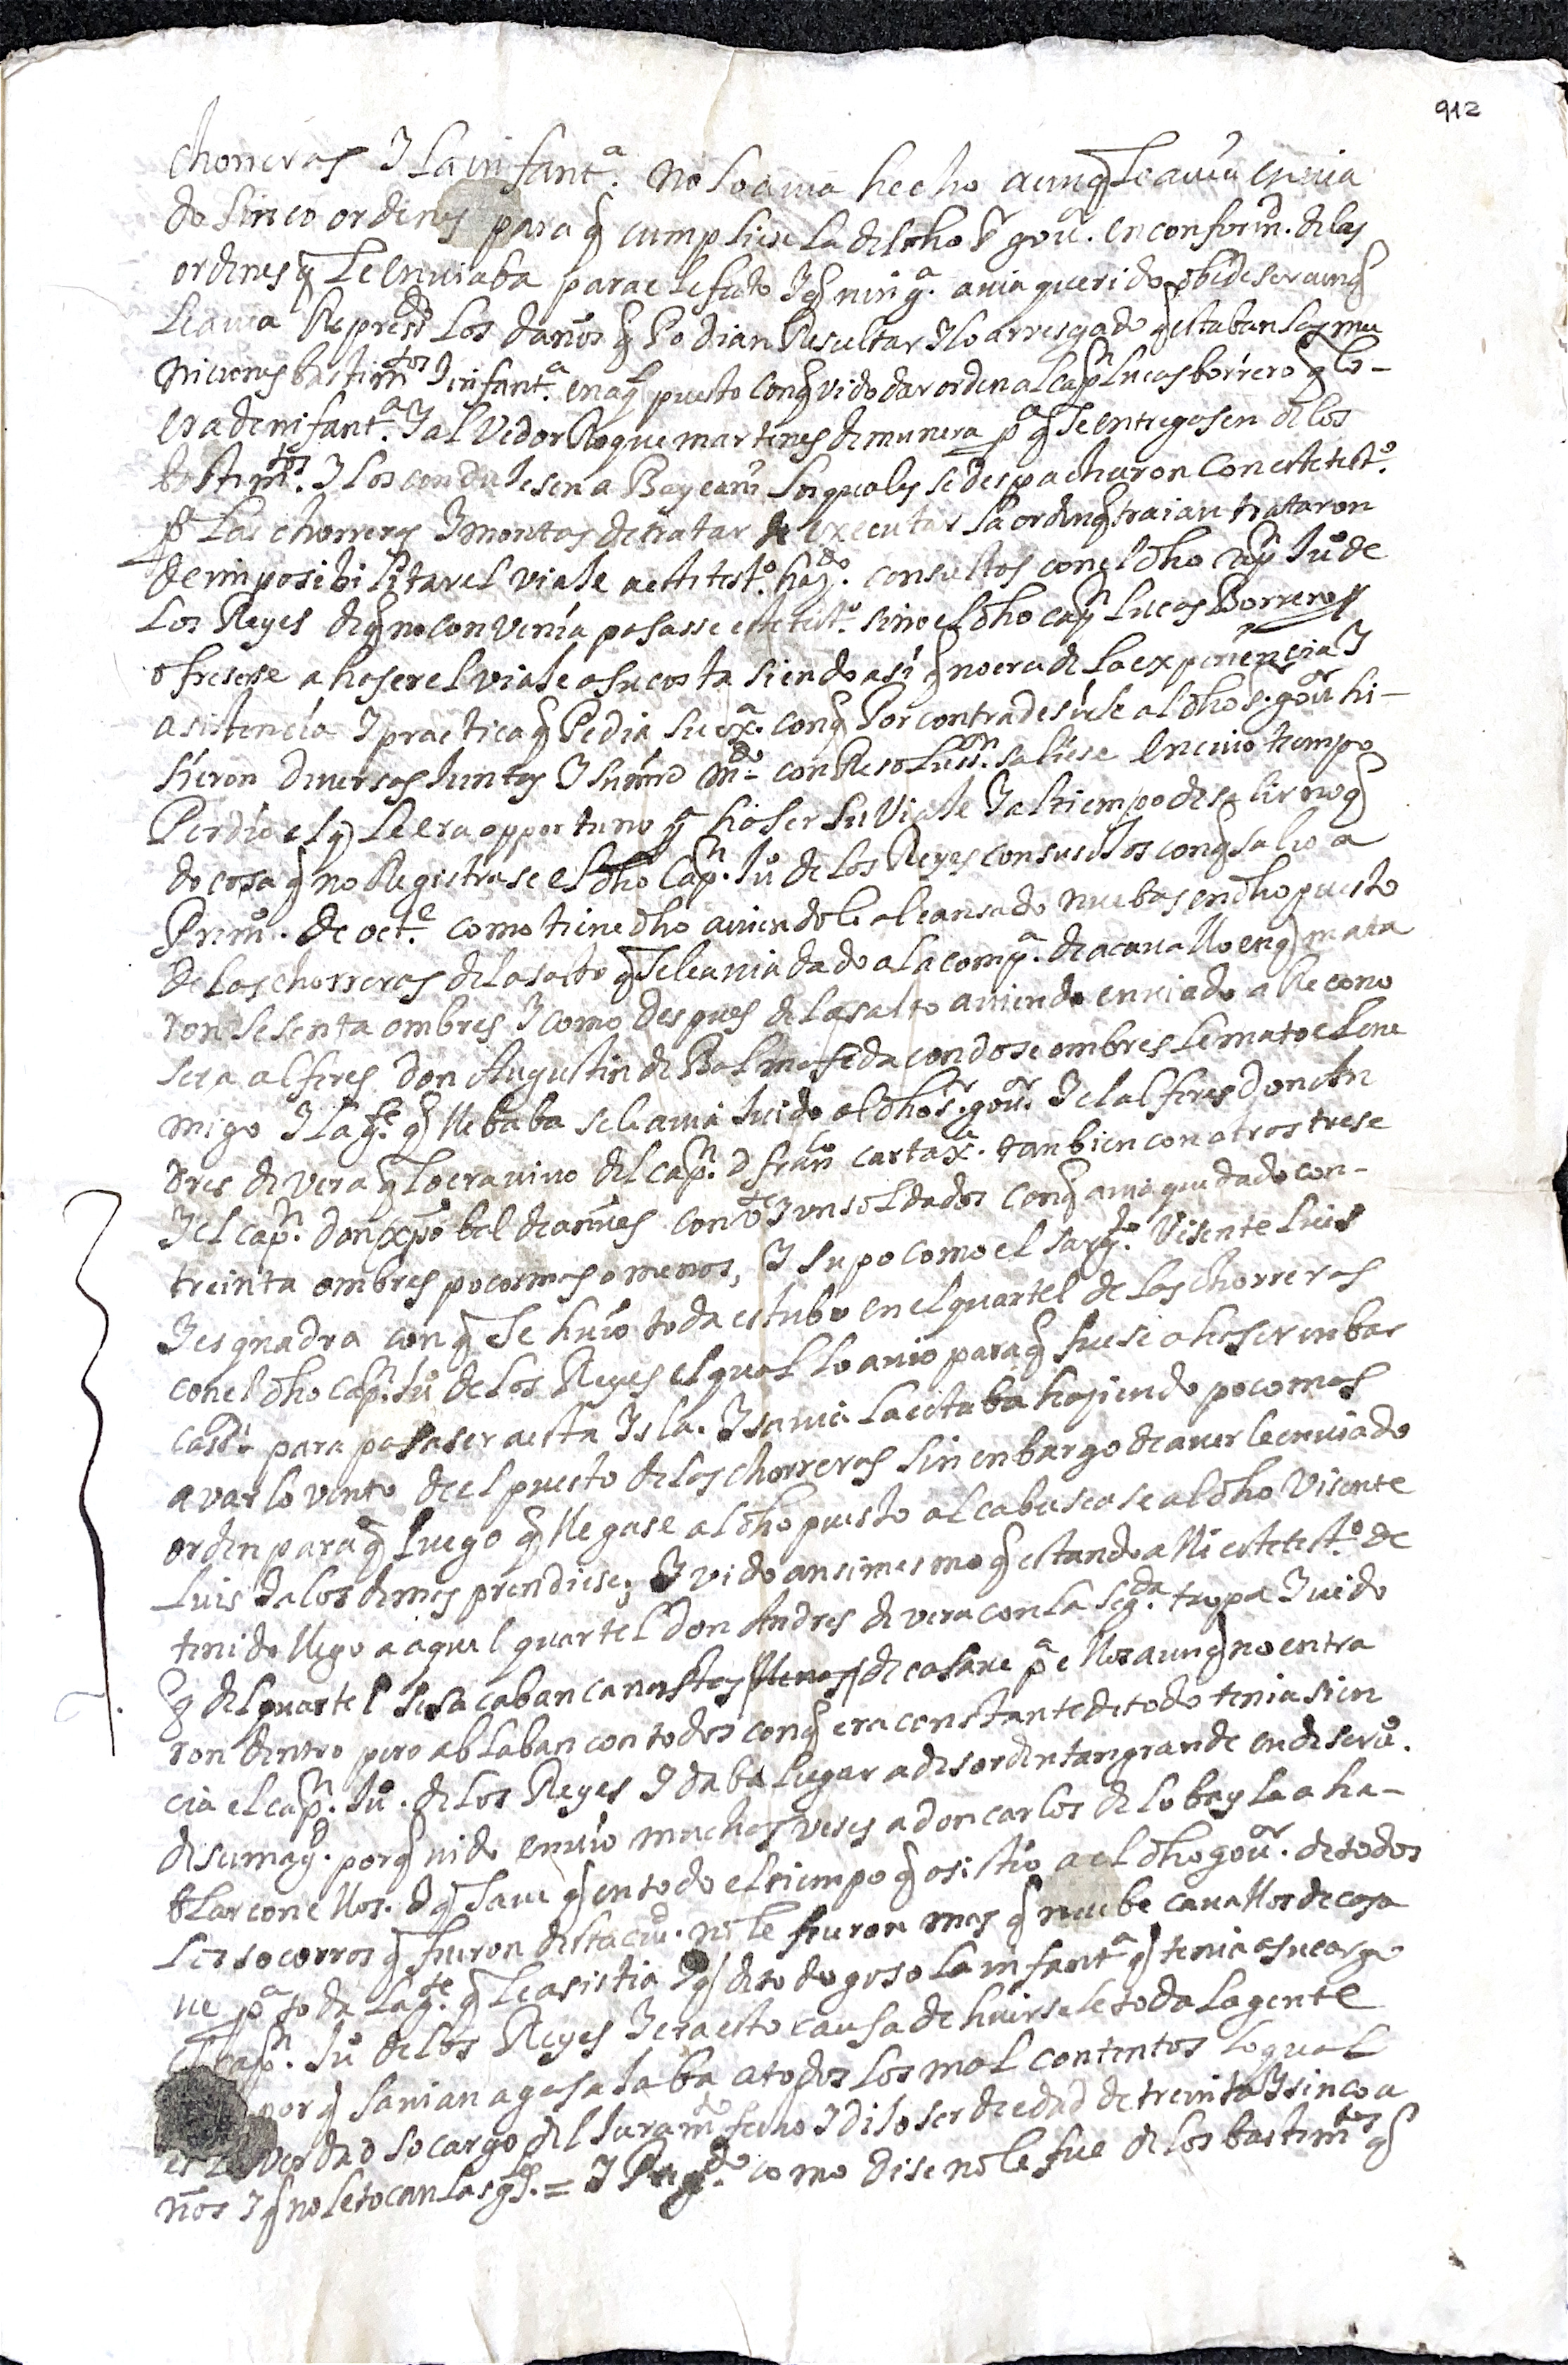 912
choneras J la infant.ª no lo avia hecho aunq̃ le avia envia
do sinco ordenes para q̃ cumpliese la del dho s.r gov.r en conformd. de las
ordenes q̃ le enviaba para el efecto J q̃ ning.ª avia querido obedeser aunq̃
le avia Represdo. los daños q̃ Podian Resultar J lo arresgado q̃ estaban las mu
niciones bastimtos. J infant.ª en aql puesto con q̃ vido dar orden al capn. Lucas borrero q̃ lo-
era de infant.ª J al Vedor Roque martines de munera p.ª q̃ se entregasen de los
bastimtos. J los condujesen a Bayeam los quales se despacharon con este test.º
p.ª Las chorreras J montas de tratar de executar la orden q̃ traian trataron
de imposibilitar el viaje a este test.º hasdo. consultas con el dho capn Ju.º de
Los Reyes de q̃ no convenía pasasse este test.º sino el dho capn Lucas Borrero
ofresese a haser el viaje a su costa siendo asi q̃ no era de la experiencia J
asistencía J practica q̃ Pedia su ex.ª con q̃ Por contradesirse al dho s.r gov.or hi-
síeron diversas Juntas J hubo con Resoluss.on saliese en cuio tiempo
Perdio el q̃ le era opportuno p.ª haser su Viaje J al tiempo de salir no q̃
do cosa q̃ no Registrase el dho Capn. Ju.º de los Reyes con sus ojos con q̃ salio a
Prim.º de oct.e como tiene dho aviendole alcansado nuebas en dho puesto
de Las chorreras del asalto q̃ se le avia dado a la comp.ª de a cavallo en q̃ mata
ron sesenta ombres J como despues del asalto aviendo enviado a Recono
ser a alferes don Augustin de Balmaseda con dose ombres le mato el ene
migo J la g.te q̃ llebaba se le avia huido al dho s.r gov.or J el alferes Don An
dres de vera q̃ lo era vivo del capn. d fran.co cartax.ª tanbien con otros trese
J el capn. don xpõbal de annes con J un soldados con q̃ avia quedado con-
treinta ombres poco mas o menos, J supo como el sarg.to Visente Luis
J esquadra con q̃ se huio toda estubo en el quartel de las chorreras
con el dho capn. Ju.º de los Reyes el qual lo avio para q̃ fuese a haser enbar
casn para pasarse a esta Jsla. J la estaba hasiendo poco mas
a varlovento de el puesto de las chorreras sin enbargo de averle enviado
orden para q̃ luego q̃ llegase al dho puesto alcabusease al dho Visente
Luis J a los demas prendiese, J vido ansimesmo q̃ estando alli este test.º de
tenido llego a aquel quartel Don Andres de vera con la seg.da tropa J vido
q̃ del quartel se sacaban canastas llenas de casave p.ª ellos aunq̃ no entra
ron dentro pero ablaban con todos con q̃ era constante de todo tenia sien
cia el capn. Ju.º de los Reyes J daba lugar a desorden tan grande en deserv.º
de su mag.d porq̃ vido envio muchas veses a don carlos de lobayla a ha-
blar con ellos. J q̃ save q̃ en todo el tiempo q̃ asistio a el dho gov.or de todos
los socorros q̃ fueron desta ciu.d no le fueron mas q̃ nuebe cavallos de casa
ve p.ª toda la g.te q̃ le asistia J q̃ de todo goso la infant.ª q̃ tenia a su cargo
el capn. Ju.º de los Reyes J era esto causa de huirsele toda la gente
porq̃ savian agasajaba a todos los mal contentos lo qual
es la verdad so cargo del Juramto. fecho J dijo ser de edad de treinta J sinco a
ños J q̃ no le tocan las gles. = J Pregdo. como dise no le fue de los bastimtos. q̃